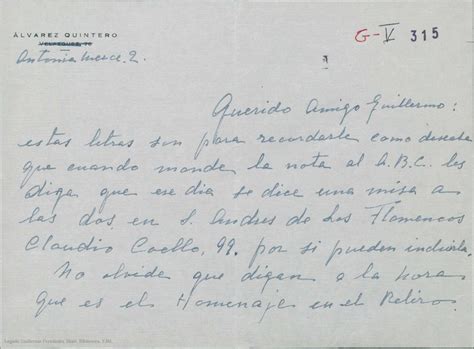 ÁLVAREZ QUINTERO
VELÁZQUEZ, 76
Antonia Merce. 2.
G-V 315
Querido Amigo Guillermo:
estas letras son para recordarte como deseaba
que cuando mande la nota al A.B.C. les
diga que ese dia se dice una misa a
las dos en S. Andres de los Flamencos
Claudio Coello, 99. por si pueden incluirla.
No olvide que digan a la hora
que es el Homenaje en el Retiro.
Legado Guillermo Fernández-Shaw. Biblioteca. FJM.